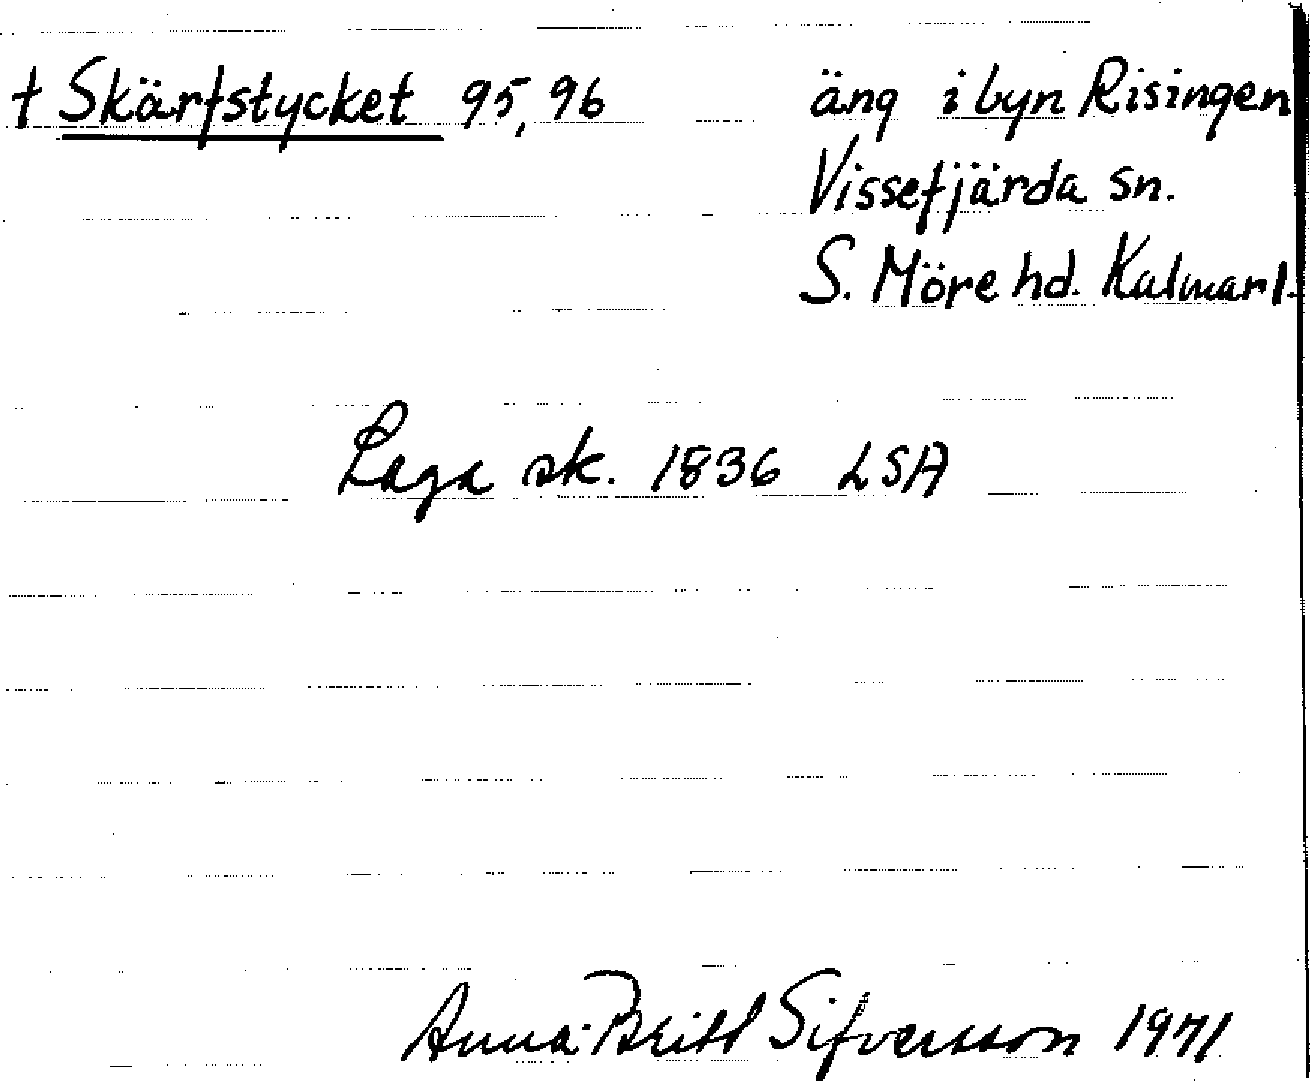 † Skärfstycket 95, 96 äng i byn Risingen
Vissefjärda sn.
S. Möre hd. Kalmar l.
Laga sk. 1836 LSA
Anna-Britt Sifversson 1971